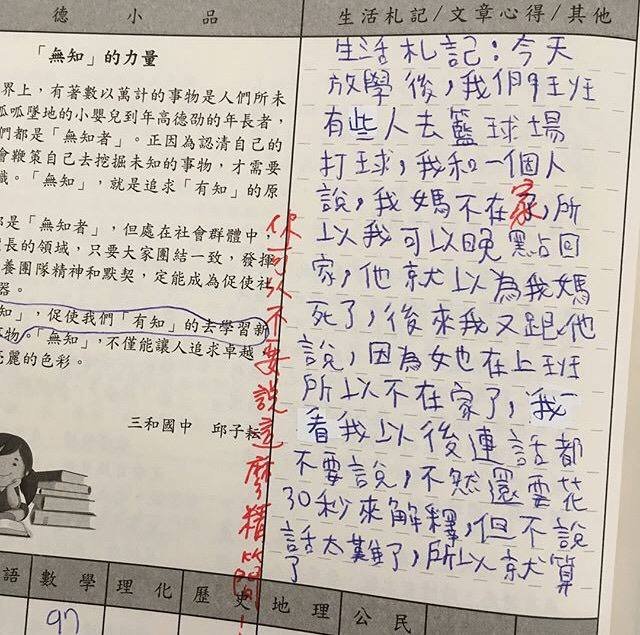 德 小 品
「無知」的力量
界上，有著數以萬計的事物是人們所未
呱呱墜地的小嬰兒到年高德劭的年長者，
們都是「無知者」。正因為認清自己的
會鞭策自己去挖掘未知的事物，才需要
識。「無知」，就是追求「有知」的原
都是「無知者」，但處在社會群體中，
擅長的領域，只要大家團結一致，發揮
養團隊精神和默契，定能成為促使社
器。
知」，促使我們「有知」的去學習新
事物。「無知」，不僅能讓人追求卓越
亮麗的色彩。
三和國中 邱子耘
你可以不要說這麼精簡！
生活札記/文章心得/其他
生活札記：今天
放學後，我們班
有些人去籃球場
打球，我和一個人
說，我媽不在家，所
以我可以晚點回
家，他就以為我媽
死了，後來我又跟他
說，因為她在上班
所以不在家了，我
看我以後連話都
不要說，不然還要花
30秒來解釋，但不說
話太難了，所以就算
了
語 數學 理化 歷史 地理 公民
97